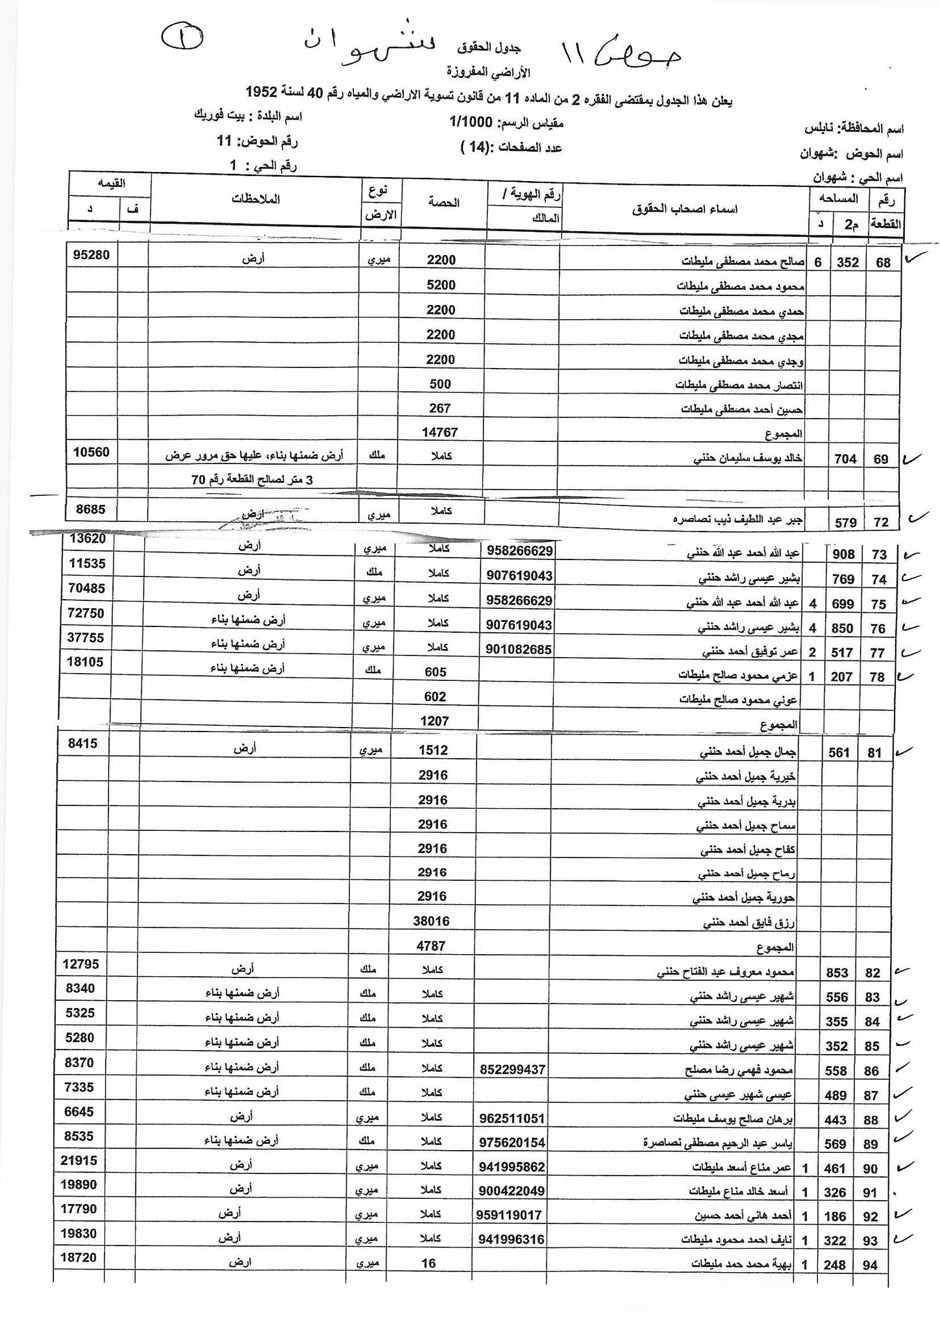 ١
حوض ١١ شهوان
جدول الحقوق
الأراضي المفروزة
يعلن هذا الجدول بمقتضى الفقره 2 من الماده 11 من قانون تسوية الاراضي والمياه رقم 40 لسنة 1952
اسم المحافظة: نابلس مقياس الرسم: 1/1000 اسم البلدة : بيت فوريك
اسم الحوض :شهوان عدد الصفحات :(14 ) رقم الحوض: 11
اسم الحي : شهوان رقم الحي : 1
رقم القطعة المساحه م2 د اسماء اصحاب الحقوق رقم الهوية / المالك الحصة نوع الارض الملاحظات القيمه ف د
68 352 6 صالح محمد مصطفى مليطات 2200 ميري أرض 95280
محمود محمد مصطفى مليطات 5200
حمدي محمد مصطفى مليطات 2200
مجدي محمد مصطفى مليطات 2200
وجدي محمد مصطفى مليطات 2200
انتصار محمد مصطفى مليطات 500
حسين أحمد مصطفى مليطات 267
المجموع 14767
69 704 خالد يوسف سليمان حنني كاملا ملك أرض ضمنها بناء، عليها حق مرور عرض 10560
3 متر لصالح القطعة رقم 70
72 579 جبر عبد اللطيف ذيب نصاصره كاملا ميري أرض 8685
73 908 عبد الله أحمد عبد الله حنني 958266629 كاملا ميري أرض 13620
74 769 بشير عيسى راشد حنني 907619043 كاملا ملك أرض 11535
75 699 4 عبد الله أحمد عبد الله حنني 958266629 كاملا ميري أرض 70485
76 850 4 بشير عيسى راشد حنني 907619043 كاملا ميري أرض ضمنها بناء 72750
77 517 2 عمر توفيق أحمد حنني 901082685 كاملا ميري أرض ضمنها بناء 37755
78 207 1 عزمي محمود صالح مليطات 605 ملك أرض ضمنها بناء 18105
عوني محمود صالح مليطات 602
المجموع 1207
81 561 جمال جميل أحمد حنني 1512 ميري أرض 8415
خيرية جميل أحمد حنني 2916
بدرية جميل أحمد حنني 2916
سماح جميل أحمد حنني 2916
كفاح جميل أحمد حنني 2916
رماح جميل أحمد حنني 2916
حورية جميل أحمد حنني 2916
رزق فايق أحمد حنني 38016
المجموع 4787
82 853 محمود معروف عبد الفتاح حنني كاملا ملك أرض 12795
83 556 شهير عيسى راشد حنني كاملا ملك أرض ضمنها بناء 8340
84 355 شهير عيسى راشد حنني كاملا ملك أرض ضمنها بناء 5325
85 352 شهير عيسى راشد حنني كاملا ملك أرض ضمنها بناء 5280
86 558 محمود فهمي رضا مصلح 852299437 كاملا ملك أرض ضمنها بناء 8370
87 489 عيسى شهير عيسى حنني كاملا ملك أرض ضمنها بناء 7335
88 443 برهان صالح يوسف مليطات 962511051 كاملا ميري أرض 6645
89 569 ياسر عبد الرحيم مصطفى نصاصرة 975620154 كاملا ملك أرض ضمنها بناء 8535
90 461 1 عمر مناع أسعد مليطات 941995862 كاملا ميري أرض 21915
91 326 1 أسعد خالد مناع مليطات 900422049 كاملا ميري أرض 19890
92 186 1 أحمد هاني أحمد حسين 959119017 كاملا ميري أرض 17790
93 322 1 نايف احمد محمود مليطات 941996316 كاملا ميري أرض 19830
94 248 1 بهية محمد حمد مليطات 16 ميري ارض 18720